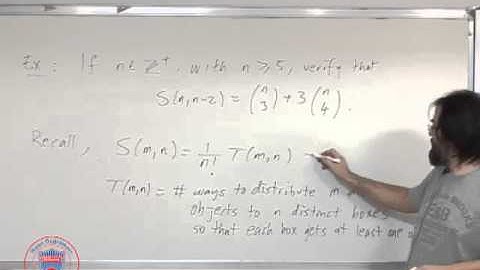 Ex : If n ∈ Z⁺, with n ≥ 5, verify that
S(n,n-2) = (n 3) + 3 (n 4).
Recall, S(m,n) = 1/n! T(m,n)
T(m,n) = # ways to distribute m
objects to n distinct boxes
so that each box gets at least one